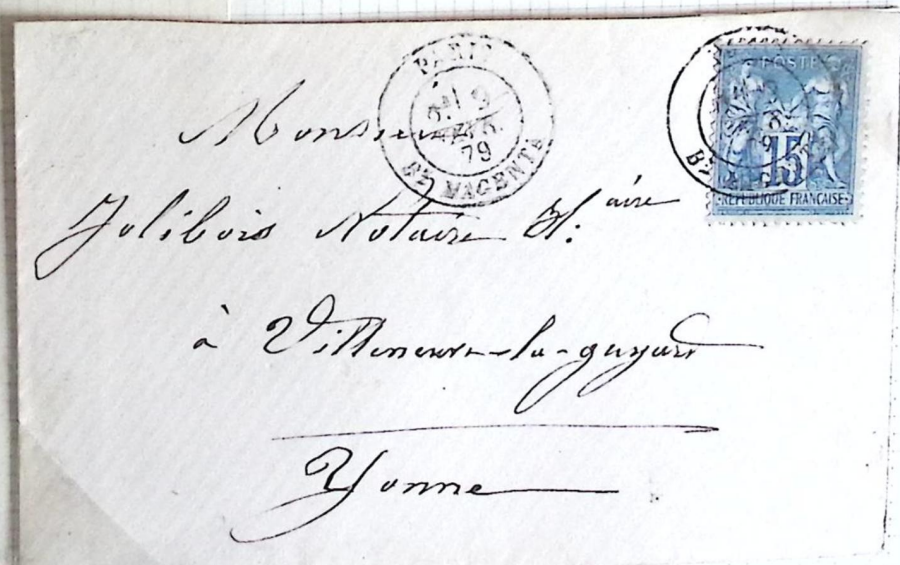 PARIS
79
Bd MAGENTA
POSTE
15
REPUBLIQUE FRANÇAISE
Monsieur
Jolibois Notaire H:aire
à Villeneuve-la-guyard
Yonne